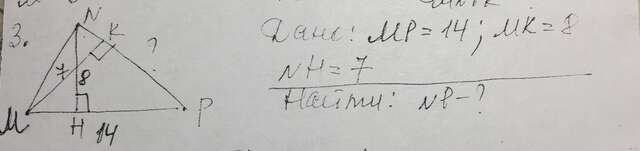 3.
N
K
?
7
8
M
H
14
P
Дано: MP = 14; MK = 8
NH = 7
Найти: NP - ?